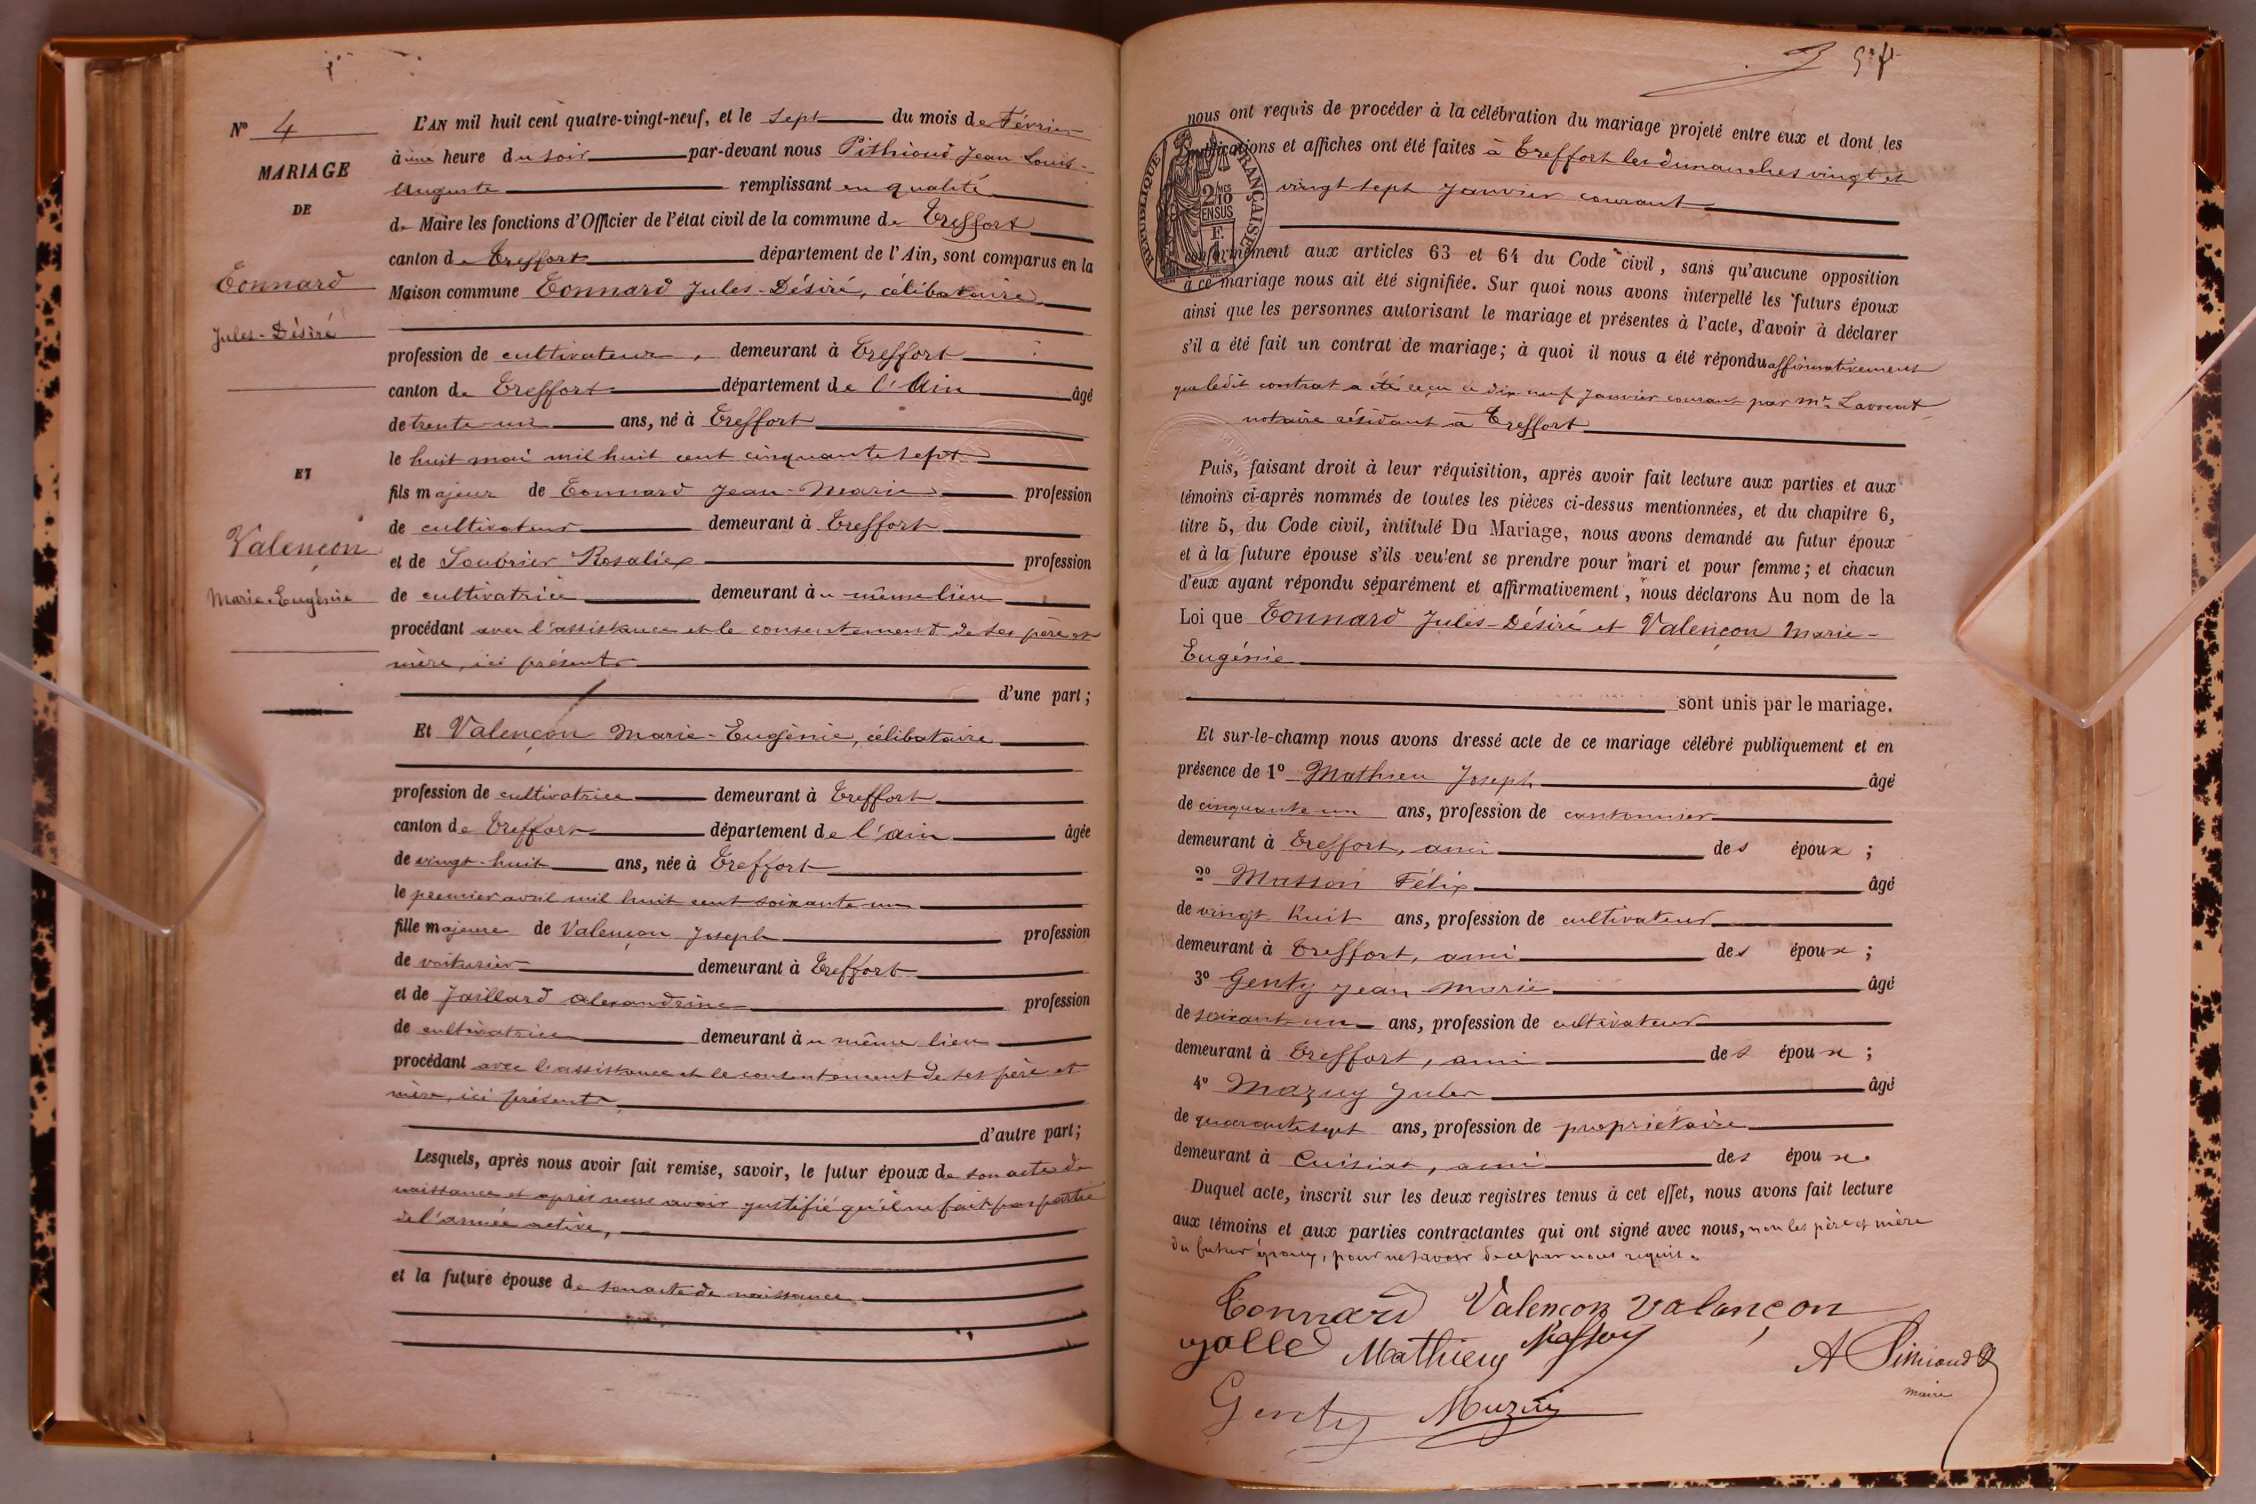 Nº 4
MARIAGE
DE
Tonnard
Jules-Désiré
ET
Valençon
Marie-Eugénie
L'AN mil huit cent quatre-vingt-neuf, et le sept du mois de Février
à une heure du soir par-devant nous Pithioud Jean Louis-
Auguste remplissant en qualité
de Maire les fonctions d'Officier de l'état civil de la commune de Treffort
canton de Treffort département de l'Ain, sont comparus en la
Maison commune Tonnard Jules-Désiré, célibataire
profession de cultivateur, demeurant à Treffort
canton de Treffort département de l'Ain âgé
de trente-un ans, né à Treffort
le huit mai mil huit cent cinquante sept
fils majeur de Tonnard Jean-Marie profession
de cultivateur demeurant à Treffort
et de Soubrier Rosalie profession
de cultivatrice demeurant à u même lieu
procédant avec l'assistance et le consentement de ses père et
mère, ici présents
d'une part ;
Et Valençon Marie-Eugénie, célibataire
profession de cultivatrice demeurant à Treffort
canton de Treffort département de l'ain âgée
de vingt-huit ans, née à Treffort
le premier avril mil huit cent soixante un
fille majeure de Valençon Joseph profession
de voiturier demeurant à Treffort
et de Jaillard alexandrine profession
de cultivatrice demeurant à u même lieu
procédant avec l'assistance et le consentement de ses père et
mère, ici présents
d'autre part ;
Lesquels, après nous avoir fait remise, savoir, le futur époux de son acte de
naissance et après nous avoir justifié qu'il ne fait pas partie
de l'armée active,
et la future épouse de son acte de naissance
nous ont requis de procéder à la célébration du mariage projeté entre eux et dont les
publications et affiches ont été faites à Treffort les dimanches vingt et
vingt sept Janvier courant
RÉPUBLIQUE FRANÇAISE
2/10 EN SUS
F.
conformément aux articles 63 et 64 du Code civil, sans qu'aucune opposition
à ce mariage nous ait été signifiée. Sur quoi nous avons interpellé les futurs époux
ainsi que les personnes autorisant le mariage et présentes à l'acte, d'avoir à déclarer
s'il a été fait un contrat de mariage ; à quoi il nous a été répondu affirmativement
que ledit contrat a été reçu le dix neuf Janvier courant par Mr. Lavocat
notaire résidant à Treffort
Puis, faisant droit à leur réquisition, après avoir fait lecture aux parties et aux
témoins ci-après nommés de toutes les pièces ci-dessus mentionnées, et du chapitre 6,
titre 5, du Code civil, intitulé Du Mariage, nous avons demandé au futur époux
et à la future épouse s'ils veulent se prendre pour mari et pour femme ; et chacun
d'eux ayant répondu séparément et affirmativement, nous déclarons Au nom de la
Loi que Tonnard Jules-Désiré et Valençon Marie-
Eugénie
sont unis par le mariage.
Et sur-le-champ nous avons dressé acte de ce mariage célébré publiquement et en
présence de 1º Mathieu Joseph âgé
de cinquante un ans, profession de cantonnier
demeurant à Treffort, ami des époux ;
2º Masson Félix âgé
de vingt huit ans, profession de cultivateur
demeurant à Treffort, ami des époux ;
3º Genty Jean Marie âgé
de soixante un ans, profession de cultivateur
demeurant à Treffort, ami des époux ;
4º Mazuy Jules âgé
de quarante sept ans, profession de propriétaire
demeurant à Cuisiat, ami des époux.
Duquel acte, inscrit sur les deux registres tenus à cet effet, nous avons fait lecture
aux témoins et aux parties contractantes qui ont signé avec nous, non les père et mère
du futur époux, pour ne savoir de ce par nous requis.
Tonnard Valençon valençon
Mathieu Masson
A Pithioud
maire
Genty Mazuy